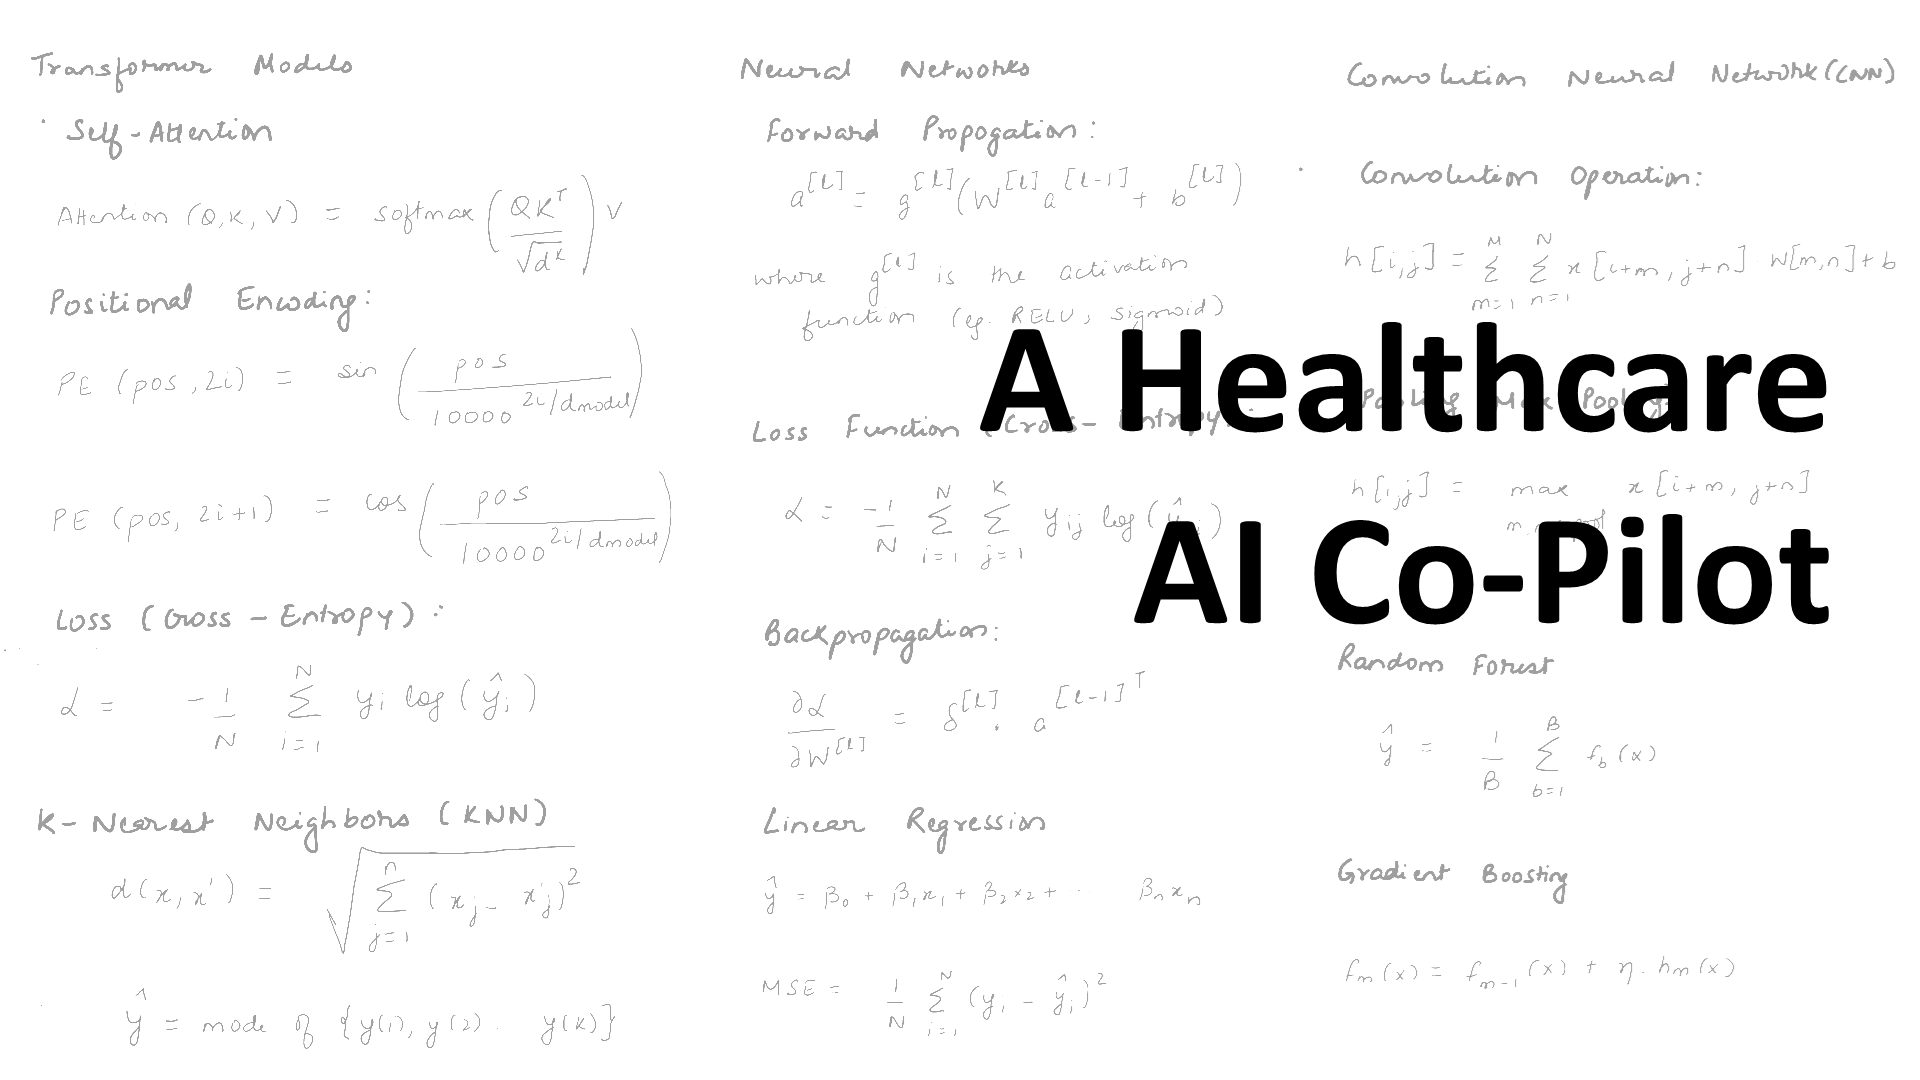 Transformer Models
Self-Attention
Attention (Q, K, V) = softmax (QK^T / √d^k) V
Positional Encoding:
PE (pos, 2i) = sin (pos / 10000^2i/dmodel)
PE (pos, 2i+1) = cos (pos / 10000^2i/dmodel)
Loss (Cross-Entropy):
L = -1/N Σ_{i=1}^{N} y_i log(ŷ_i)
K-Nearest Neighbors (KNN)
d(x, x') = √ Σ_{j=1}^{n} (x_j - x'_j)^2
ŷ = mode of {y(1), y(2) . y(k)}
Neural Networks
Forward Propogation:
a^[l] = g^[l](W^[l] a^[l-1] + b^[l])
where g^[l] is the activation
function (eg. RELU, sigmoid)
Loss Function (Cross-Entropy):
L = -1/N Σ_{i=1}^{N} Σ_{j=1}^{K} y_ij log(ŷ_ij)
Backpropagation:
∂L / ∂W^[l] = δ^[l] . a^[l-1]T
Linear Regression
ŷ = β_0 + β_1x_1 + β_2x_2 + . β_nx_n
MSE = 1/N Σ_{i=1}^{N} (y_i - ŷ_i)^2
Convolution Neural Network (CNN)
Convolution Operation:
h[i,j] = Σ_{m=1}^{M} Σ_{n=1}^{N} x[i+m, j+n] W[m,n] + b
A Healthcare
AI Co-Pilot
Max Pooling
h[i,j] = max x[i+m, j+n]
Random Forest
ŷ = 1/B Σ_{b=1}^{B} f_b(x)
Gradient Boosting
f_m(x) = f_m-1(x) + η . h_m(x)